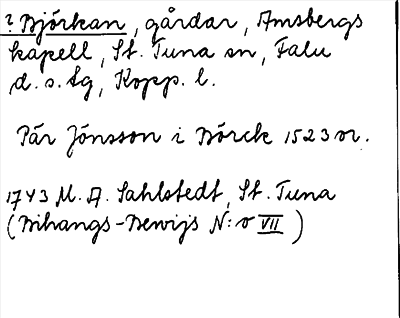 ? Björkan, gårdar, Amsbergs
kapell, St. Tuna sn, Falu
d. s. lg, Kopp. l.
Pär Jönsson i Börck 1523 or.
1743 M. A. Sahlstedt, St. Tuna
(Bihangs-Bewijs N:o VII)